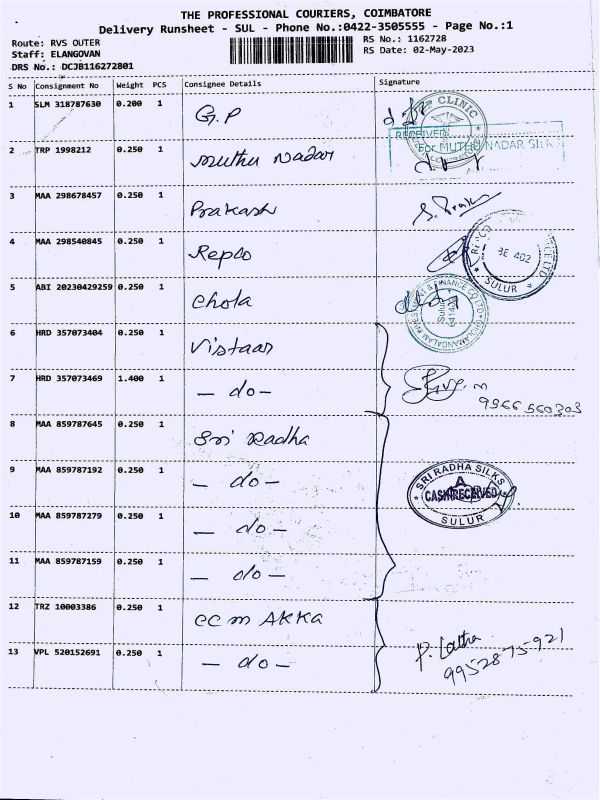 THE PROFESSIONAL COURIERS, COIMBATORE
Delivery Runsheet - SUL - Phone No.:0422-3505555 - Page No.:1
Route: RVS OUTER
Staff: ELANGOVAN
DRS No.: DCJB116272801
RS No.: 1162728
RS Date: 02-May-2023
S No Consignment No Weight PCS Consignee Details Signature
1 SLM 318787630 0.200 1 G.P
CLINIC
RECEIVED
For MUTHU NADAR SILKS
2 TRP 1998212 0.250 1 Muthu Nadar
3 MAA 298678457 0.250 1 Prakash
4 MAA 298540845 0.250 1 Repco
SULUR
5 ABI 20230429259 0.250 1 Chola
6 HRD 357073404 0.250 1 Vistaar
7 HRD 357073469 1.400 1 - do -
9966560303
8 MAA 859787645 0.250 1 Sri Radha
9 MAA 859787192 0.250 1 - do -
SRI RADHA SILKS
CASH RECEIVED
SULUR
10 MAA 859787279 0.250 1 - do -
11 MAA 859787159 0.250 1 - do -
12 TRZ 10003386 0.250 1 CC M AKKA
P. Latha
9952875921
13 VPL 520152691 0.250 1 - do -